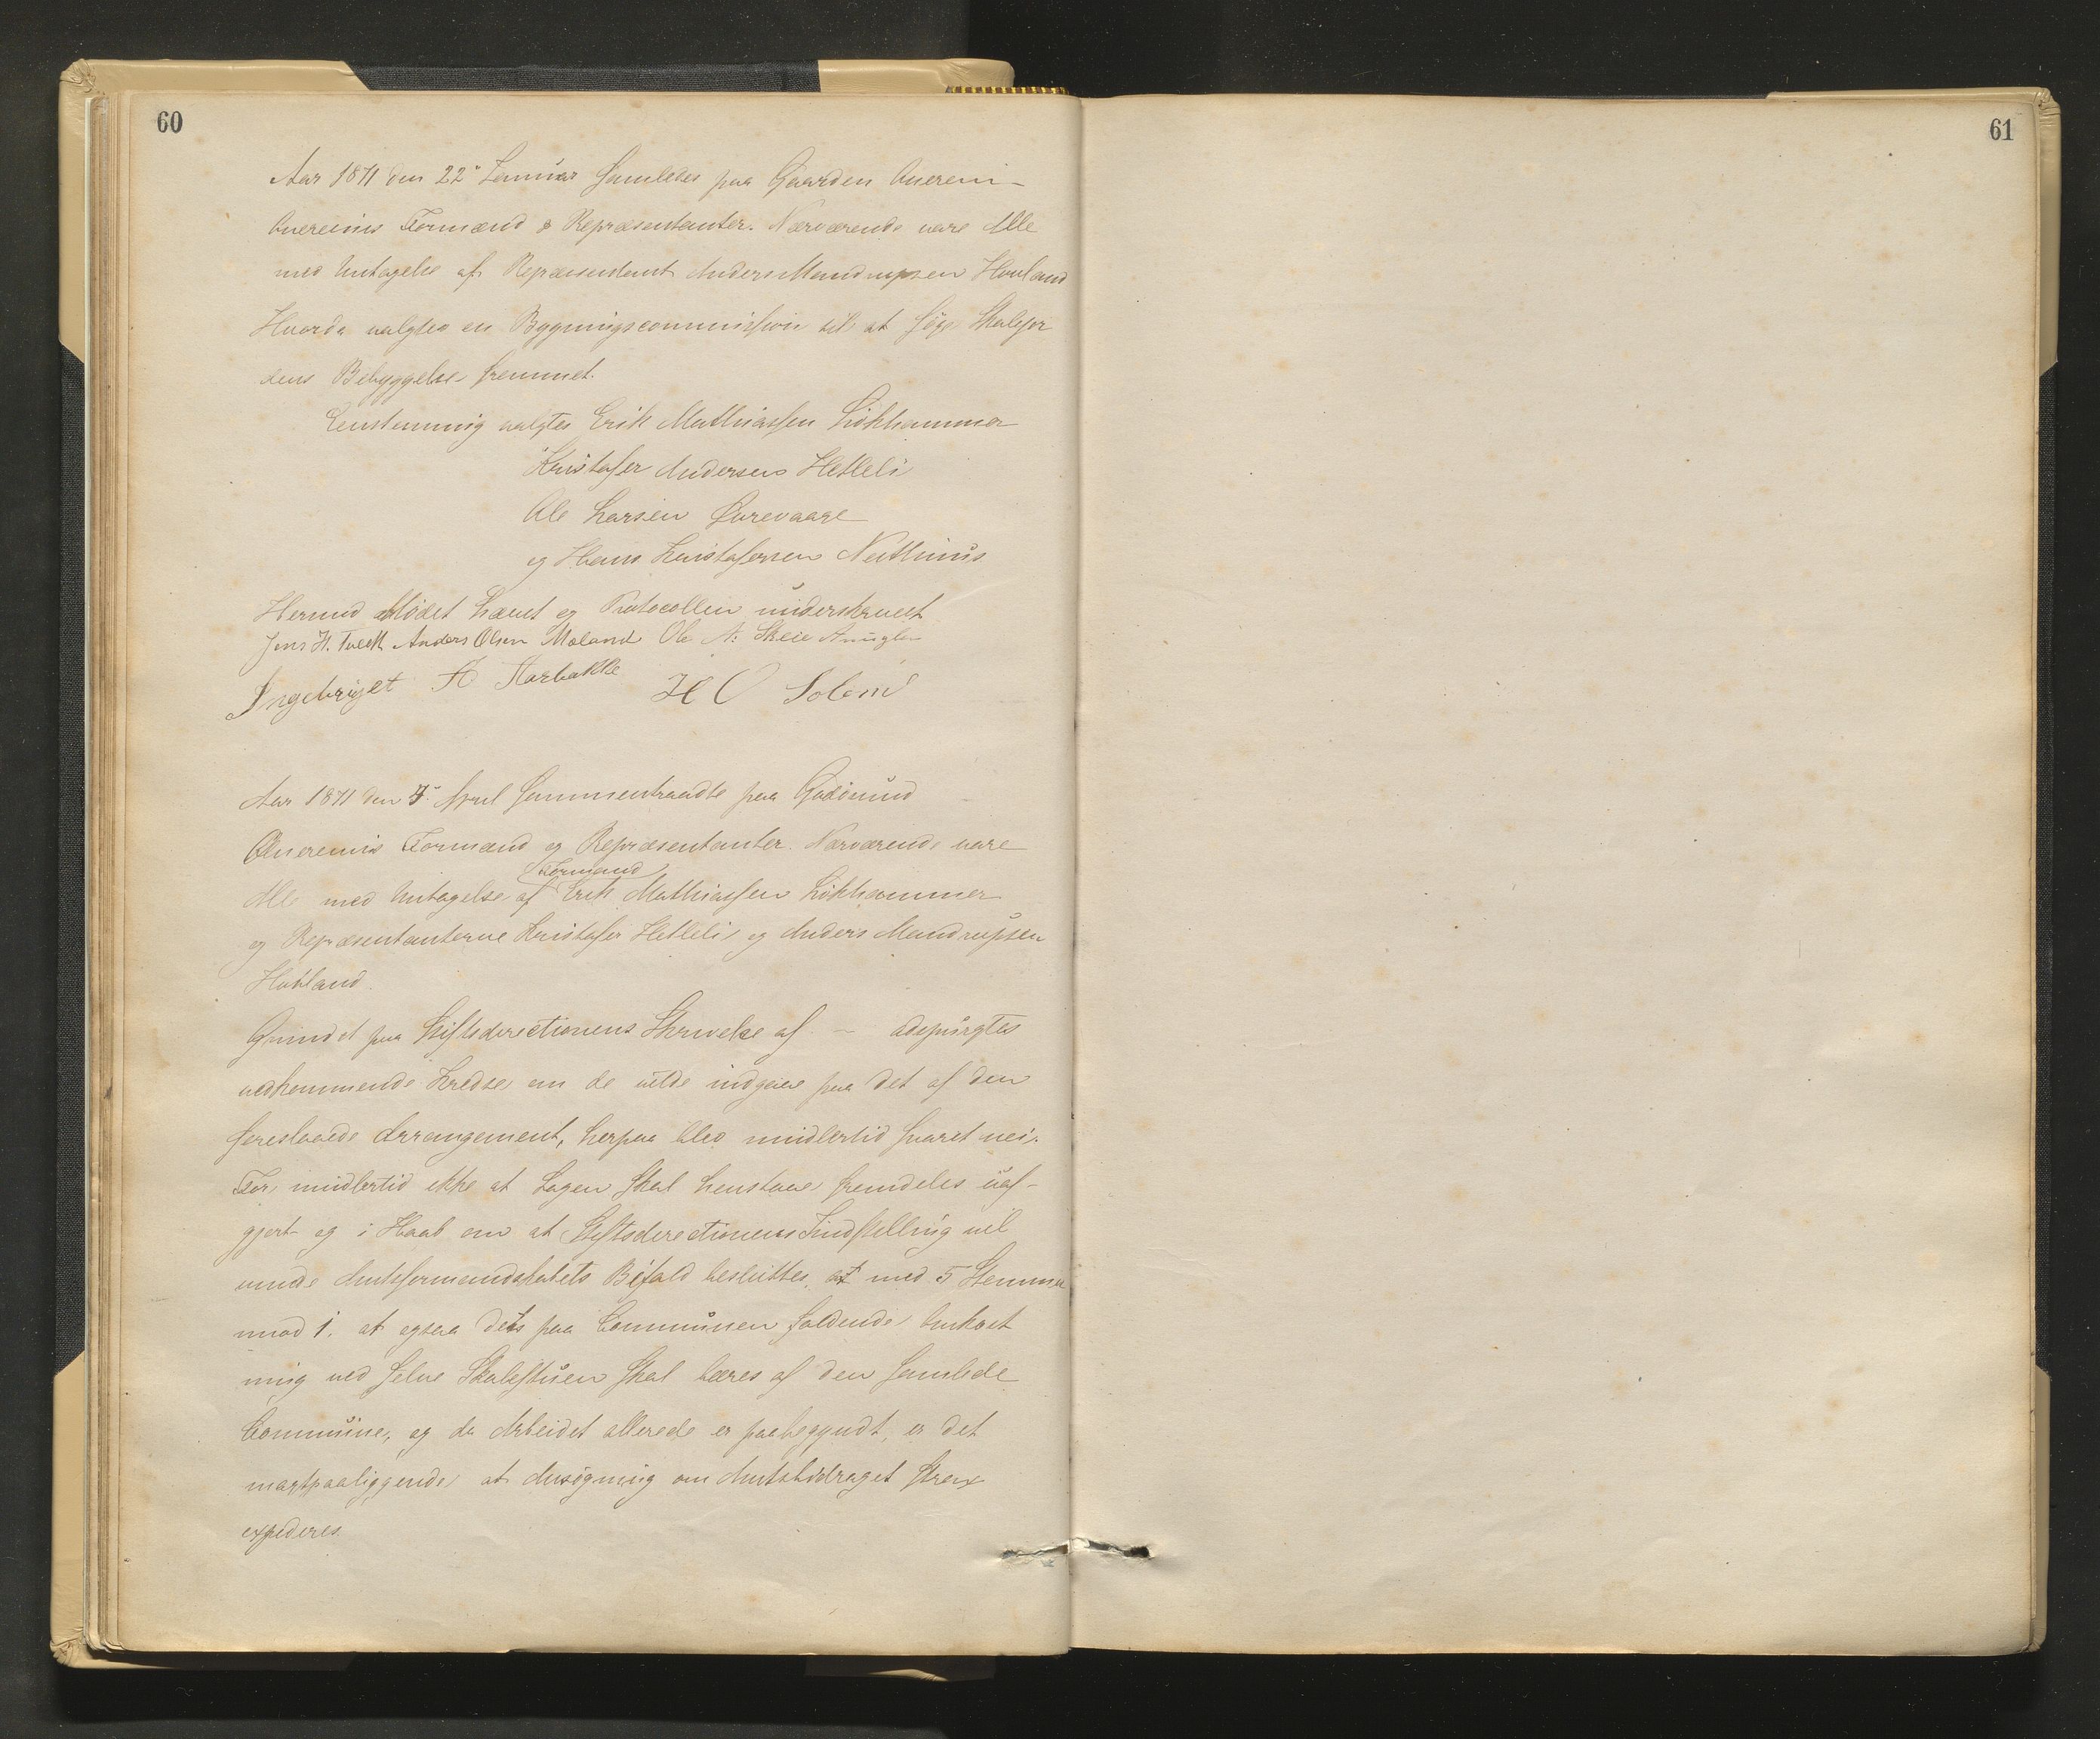 60
61
Aar 1871 den 22de Januar samledes paa Gaarden Onereim
Onereims Formænd & Repræsentanter. Nærværende vare Alle
med Untagelse af Repræsentant Anders Mandrupsen Hovland
Hvorda valgtes en Bygningscommission til at søge Skolejor
dens Bebyggelse fremmet.
Eenstemmig valgtes Erik Mathiassen Lökhammer
Kristofer Andersen Hetleli
Ole Larsen Øvrevaage
og Hans Kristofersen Næthuus
Hermed Mödet hævet og Protocollen underskrevet
Jens H. Tvedt Anders Olsen Maland Ole N. Skeie Anuglen
Ingebrigt A Aarbakke H O Solem
Aar 1871 den 5te April sammentraadte paa Godöund
Onereims Formænd og Repræsentanter. Nærværende vare
Formand
Alle med Untagelse af Erik Mathiassen Lökhammer
og Repræsentanterne Kristofer Hetleli og Anders Mandrupsen
Hovland.
Grundet paa Stiftsdirectionens Skrivelse af – adspurgtes
vedkommende Kredse om de vilde indgaae paa det af den
foreslaaede Arrangement, herpaa blev imidlertid svaret nei.
For imidlertid ikke at Sagen skal henstaae fremdeles uaf-
gjort og i Haab om at Stiftsdirectionens Indstilling vil
vinde Amtsformandskabets Bifald besluttes, at med 5 Stemmer
mod 1. at ogsaa dets paa Communen faldende Omkost
ning ved selve Skolestuen skal bæres af den samlede
Commune, og da Arbeidet allerede er paabegyndt, er det
magtpaaliggende at Ansögning om Amtsbidraget strax
expederes.